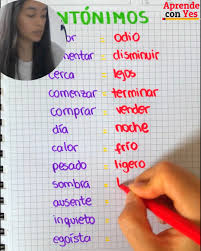 Aprende
con Yes
NTÓNIMOS
or odio
mentar disminuir
cerca lejos
comenzar terminar
comprar vender
día noche
calor frío
pesado ligero
sombra
ausente
inquieto
egoísta